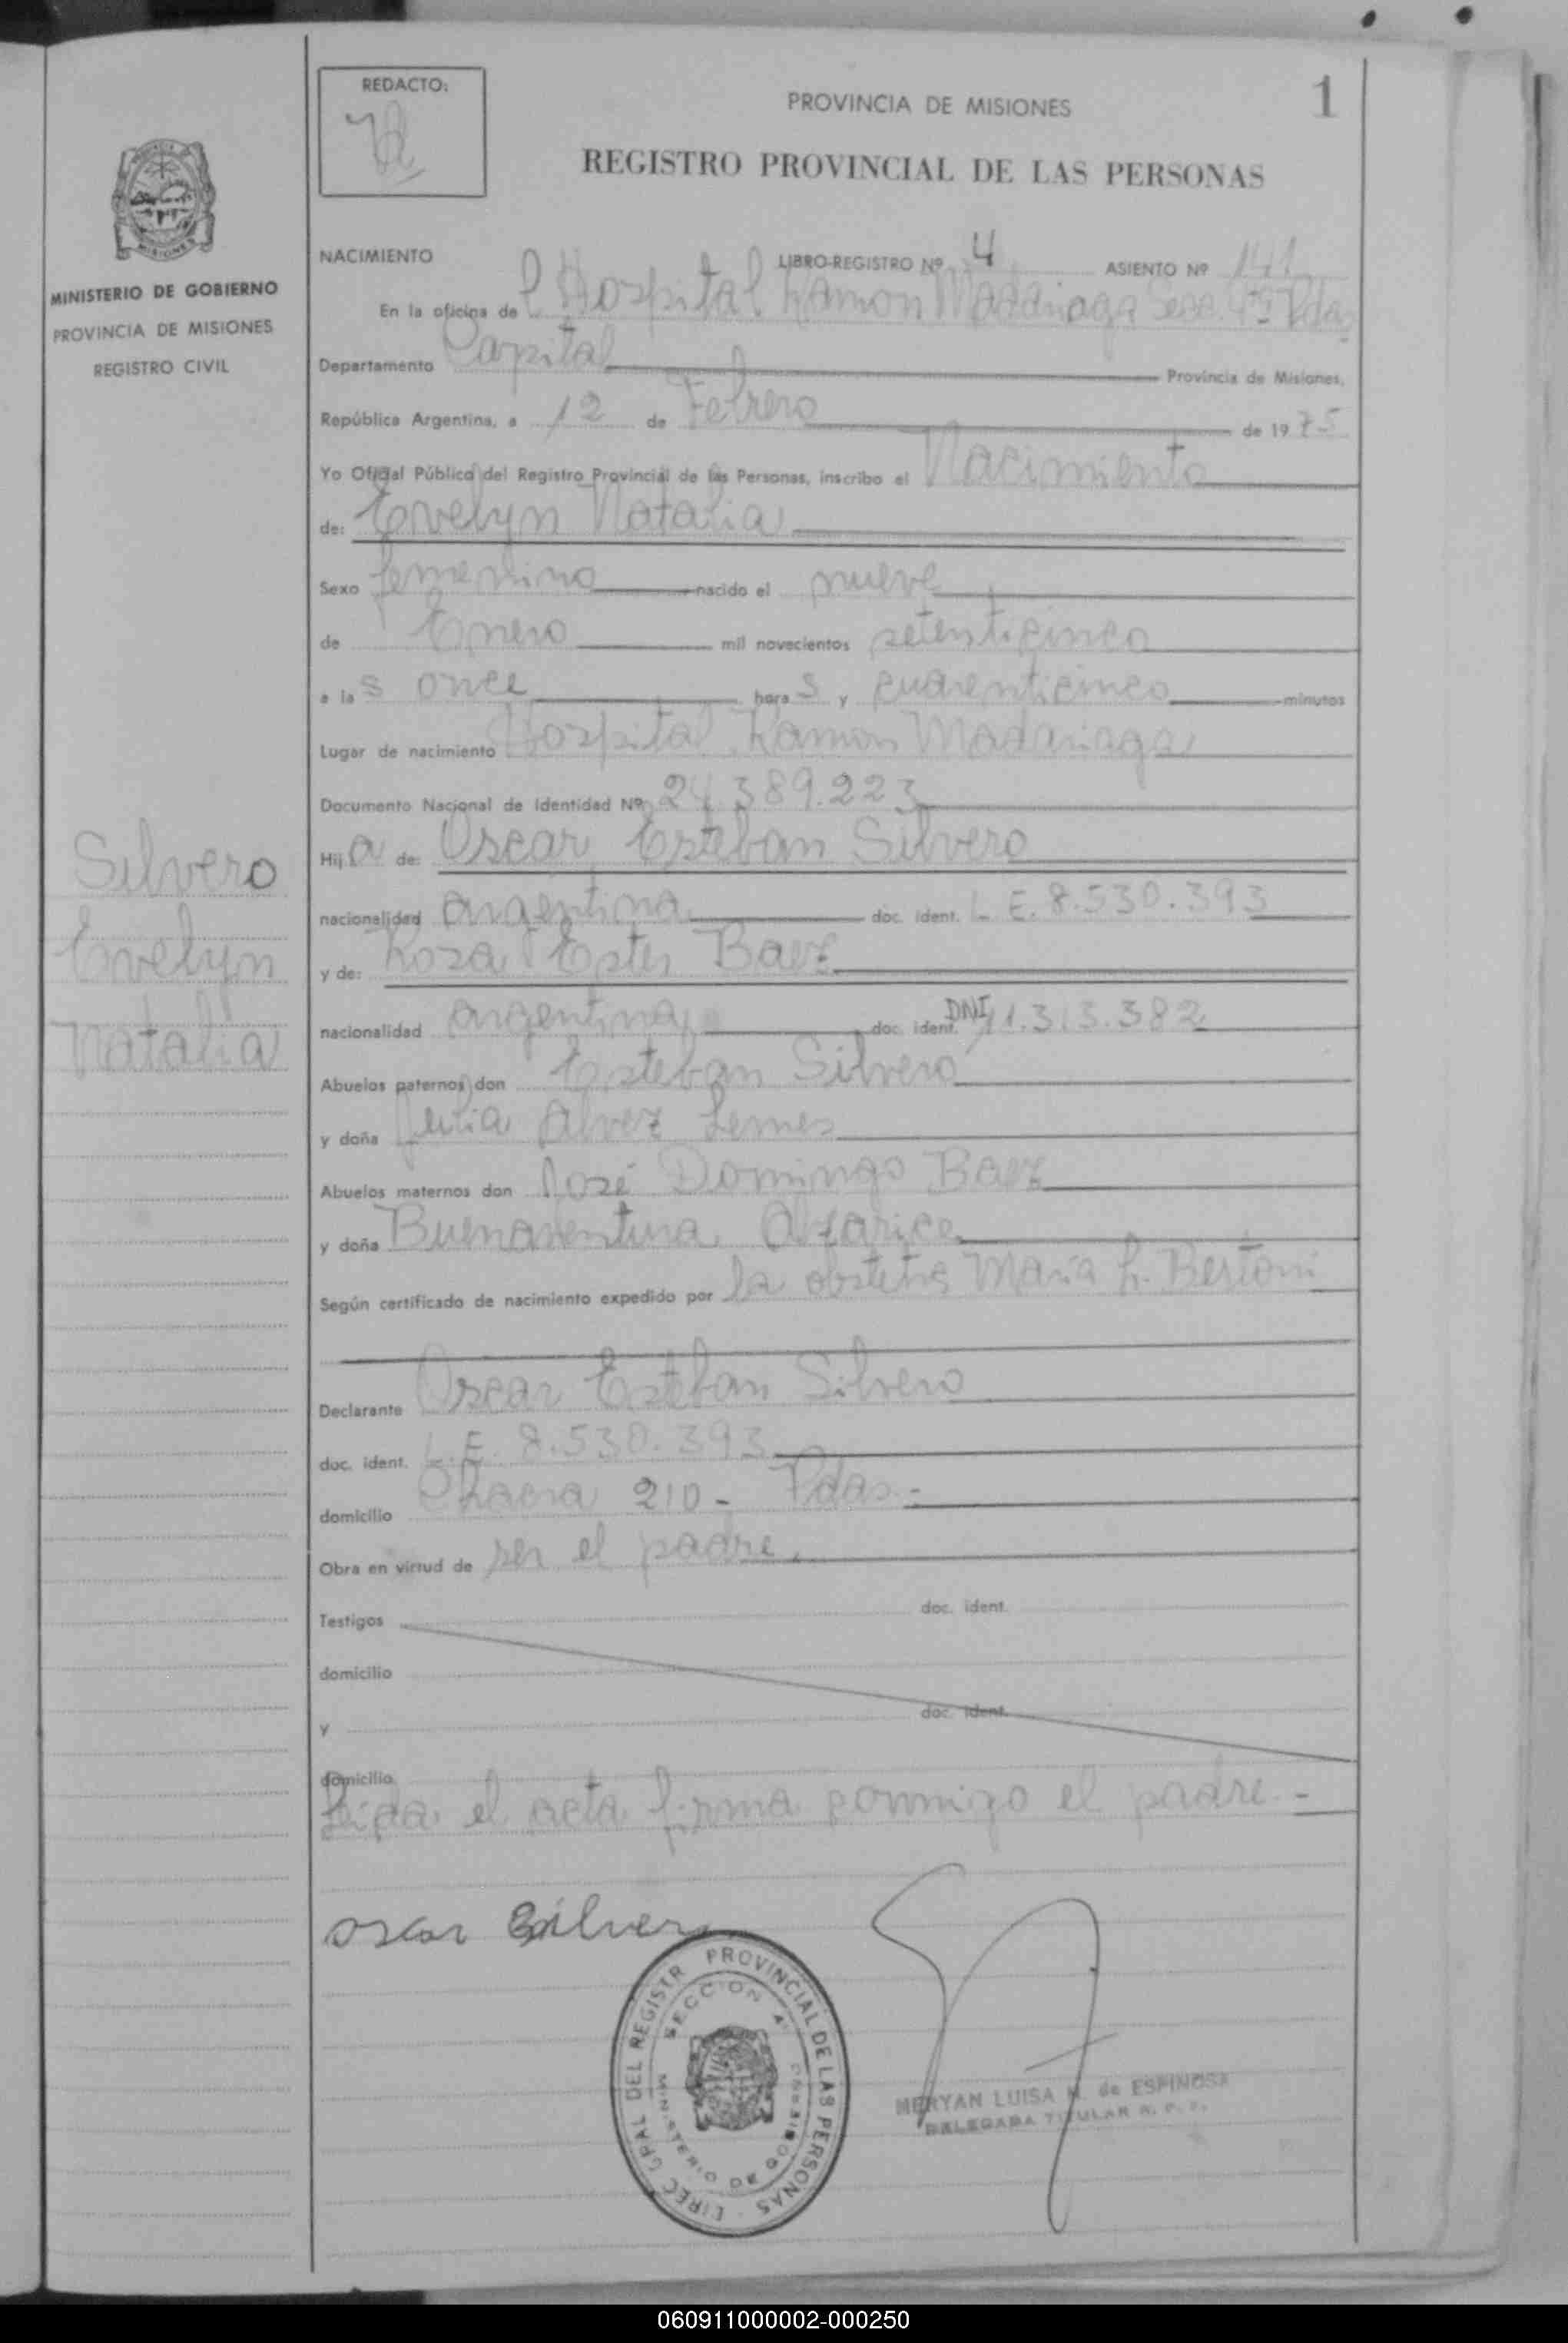 REDACTO:
1
PROVINCIA DE MISIONES
REGISTRO PROVINCIAL DE LAS PERSONAS
MISIONES
MINISTERIO DE GOBIERNO
PROVINCIA DE MISIONES
REGISTRO CIVIL
NACIMIENTO LIBRO-REGISTRO Nº 4 ASIENTO Nº 141
En la oficina del Hospital Ramon Madariaga Secc. 4ª Pdas
Departamento Capital Provincia de Misiones,
República Argentina, a 12 de Febrero de 1975
Yo Oficial Público del Registro Provincial de las Personas, inscribo el Nacimiento
de: Evelyn Natalia
Sexo femenino nacido el nueve
de Enero mil novecientos setenticinco
a las once horas y cuarenticinco minutos
Lugar de nacimiento Hospital Ramon Madariaga
Documento Nacional de Identidad Nº 24.389.223
Hija de: Oscar Esteban Silvero
nacionalidad argentina doc. ident. L.E. 8.530.393
y de: Rosa Ester Baez
nacionalidad argentina doc. ident. DNI 11.313.382
Abuelos paternos don Esteban Silvero
y doña Julia Alvez Lemes
Abuelos maternos don José Domingo Baez
y doña Buenaventura
Según certificado de nacimiento expedido por la obstetra Maria L. Bertoni
Declarante Oscar Esteban Silvero
doc. ident. L.E. 8.530.393
domicilio Chacra 210 - Pdas.-
Obra en virtud de ser el padre.
Testigos doc. ident.
domicilio
y doc. ident.
domicilio
Leida el acta firma conmigo el padre.-
Silvero
Evelyn
Natalia
Oscar Silvero
DIREC GRAL DEL REGISTR PROVINCIAL DE LAS PERSONAS
SECCION 4ª
MINISTERIO DE GOBIERNO
MERYAN LUISA N. de ESPINOSA
DELEGADA TITULAR R. P. P.
060911000002-000250